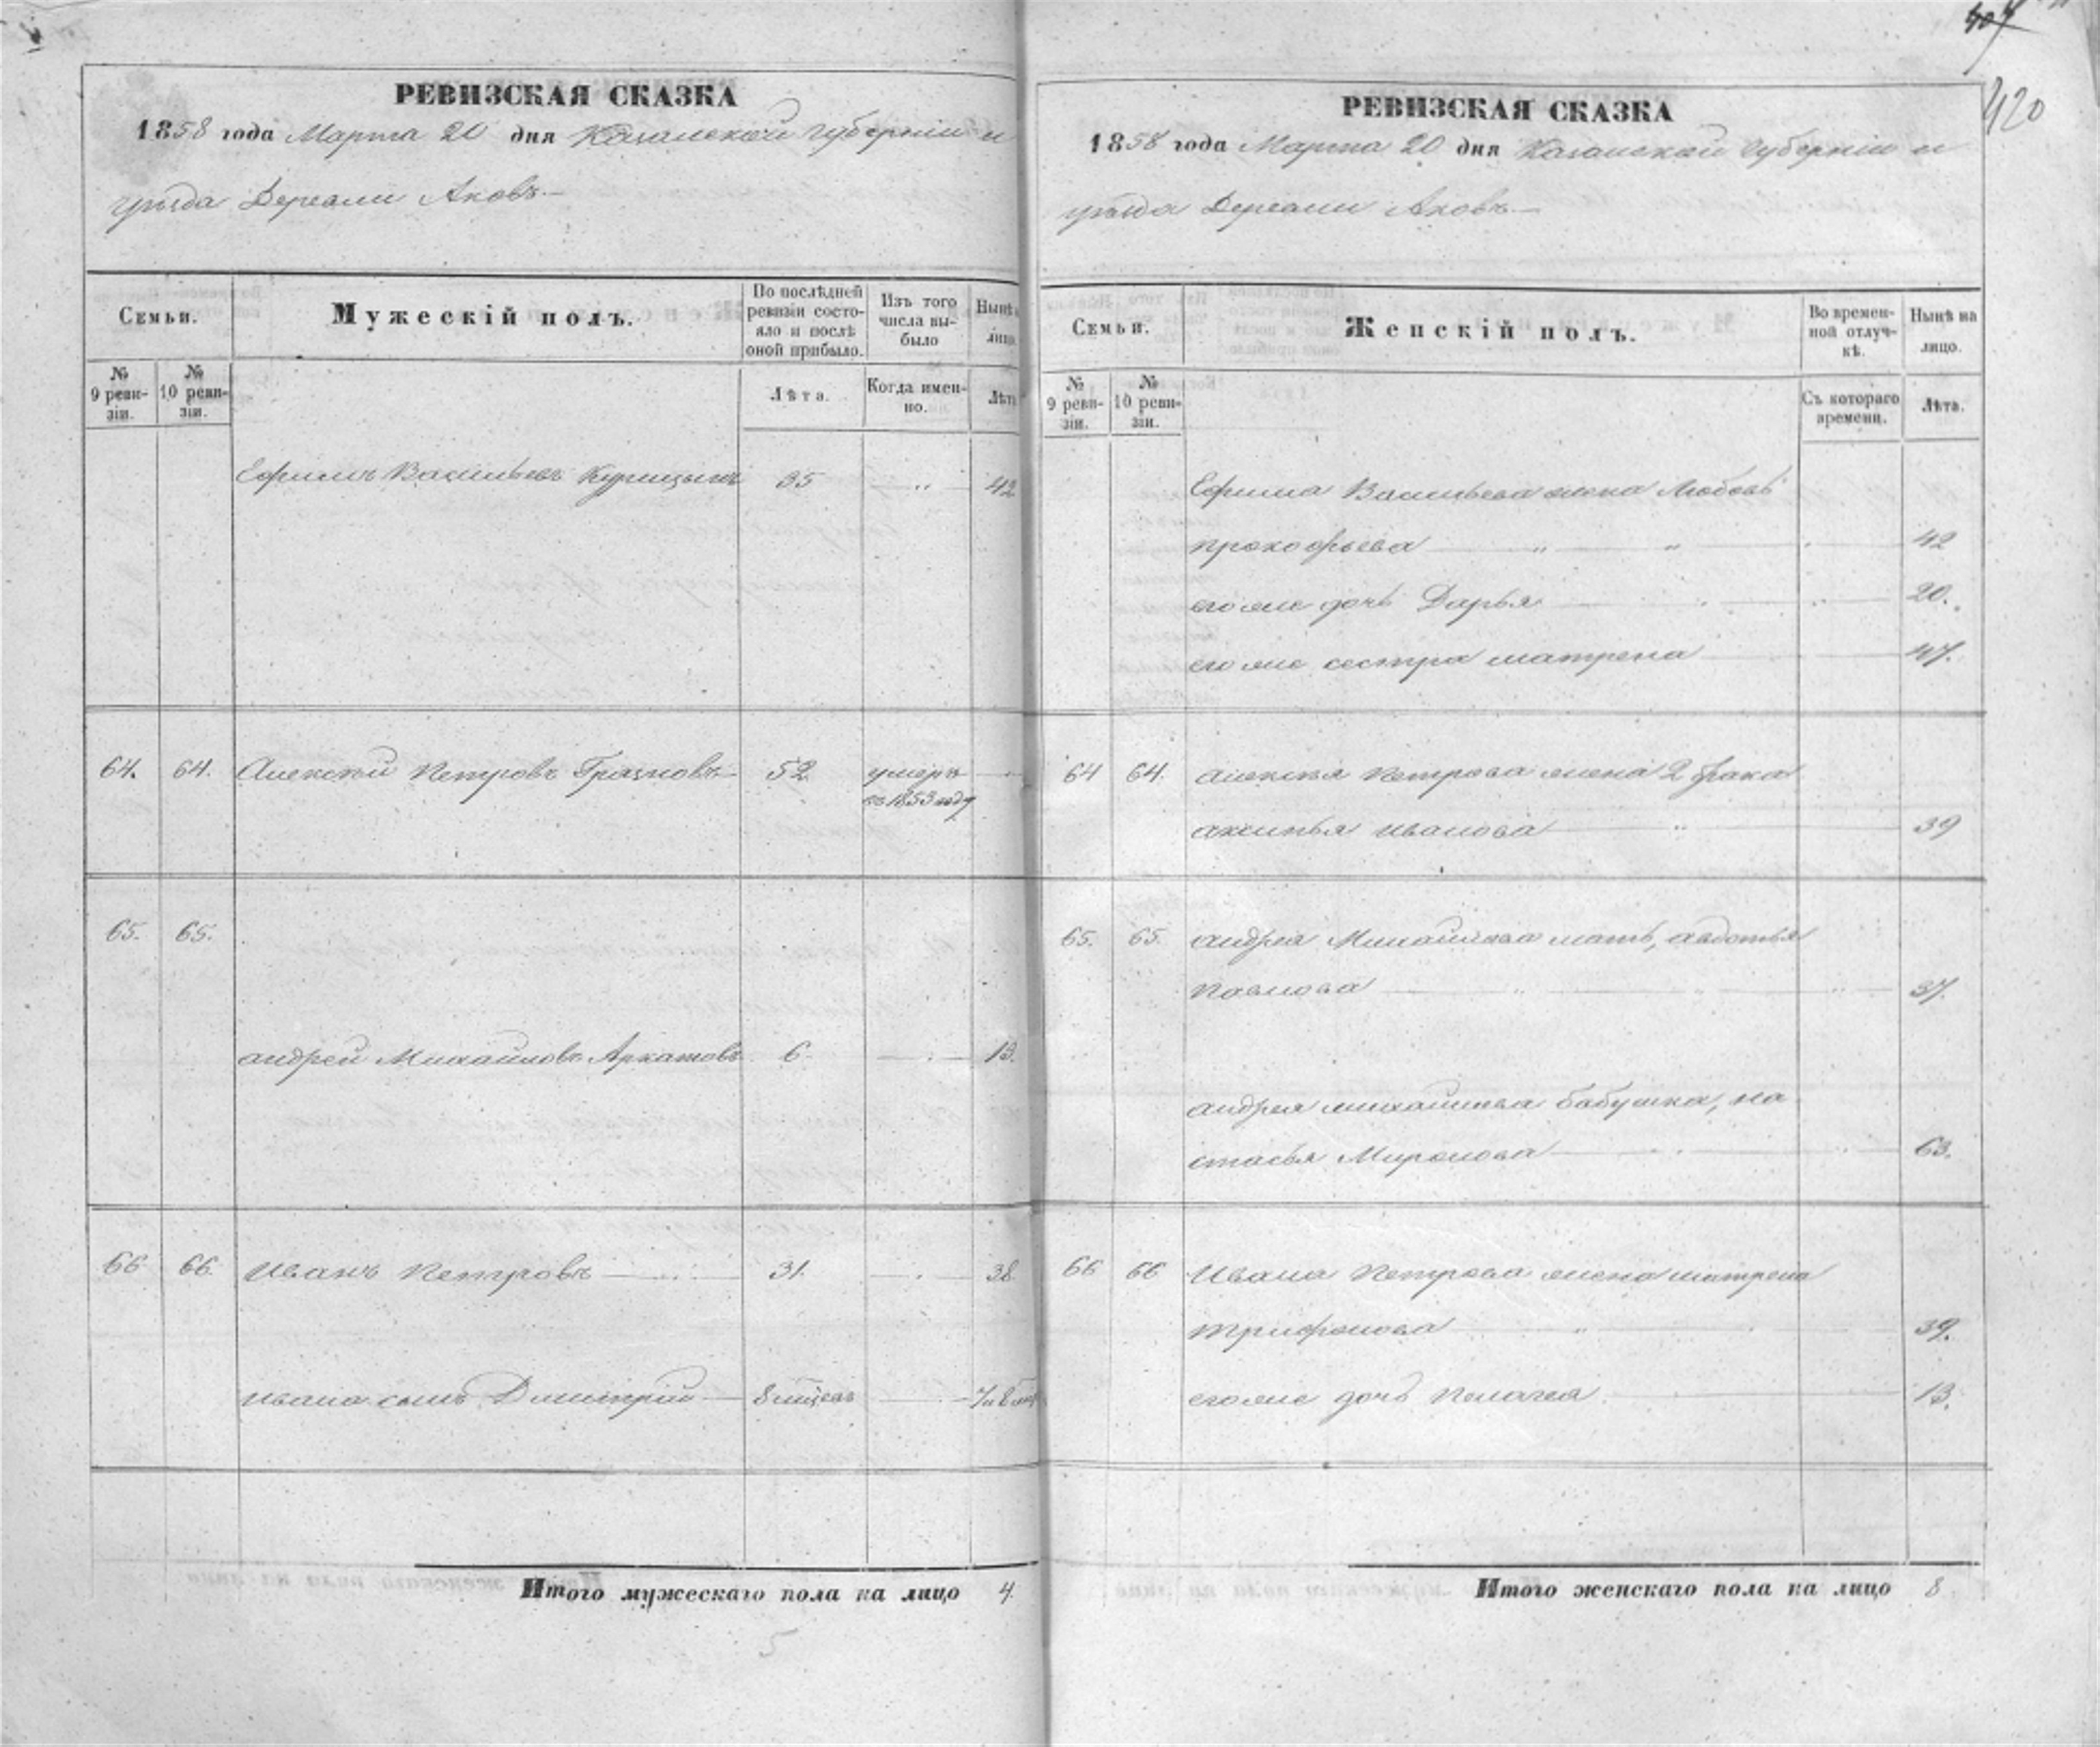 407
420
РЕВИЗСКАЯ СКАЗКА
1858 года Марта 20 дня Казанской губерніи и
уѣзда Деревни Аковъ
Семьи.
Мужескій полъ.
По послѣдней ревизіи состояло и послѣ оной прибыло.
Изъ того числа выбыло
Нынѣ лицо
№ 9 ревизіи.
№ 10 ревизіи.
Лѣта.
Когда именно.
Лѣт
Ефимъ Васильевъ Курицынъ 35 " 42
64. 64. Алексѣй Петровъ Грязновъ 52 умеръ
въ 1853 году
65. 65.
андрей Михайловъ Аркатовъ 6 13.
66 66. Иванъ Петровъ 31. 38
ивана сынъ Димитрій 8 мцевъ 7 и 8 мц
Итого мужескаго пола на лицо 4.
5
РЕВИЗСКАЯ СКАЗКА
1858 года Марта 20 дня Казанской Губерніи и
уѣзда Деревни Аковъ
Семьи.
Женскій полъ.
Во временной отлучкѣ.
Нынѣ на лицо.
№ 9 ревизіи.
№ 10 ревизіи.
Съ котораго времени.
Лѣта.
Ефима Васильева жена Любовь
прокофьева " " 42
его же дочь Дарья 20.
его же сестра матрена 47.
64 64. алексѣя Петрова жена 2 брака
аксинья иванова " 39
65. 65. андрея Михайлова мать, авдотья
Павлова 37.
андрея михайлова бабушка, на
стасья Миронова 63.
66 66 Ивана Петрова жена матрена
трифонова " 39.
его же дочь Пелагея 13.
Итого женскаго пола на лицо 8